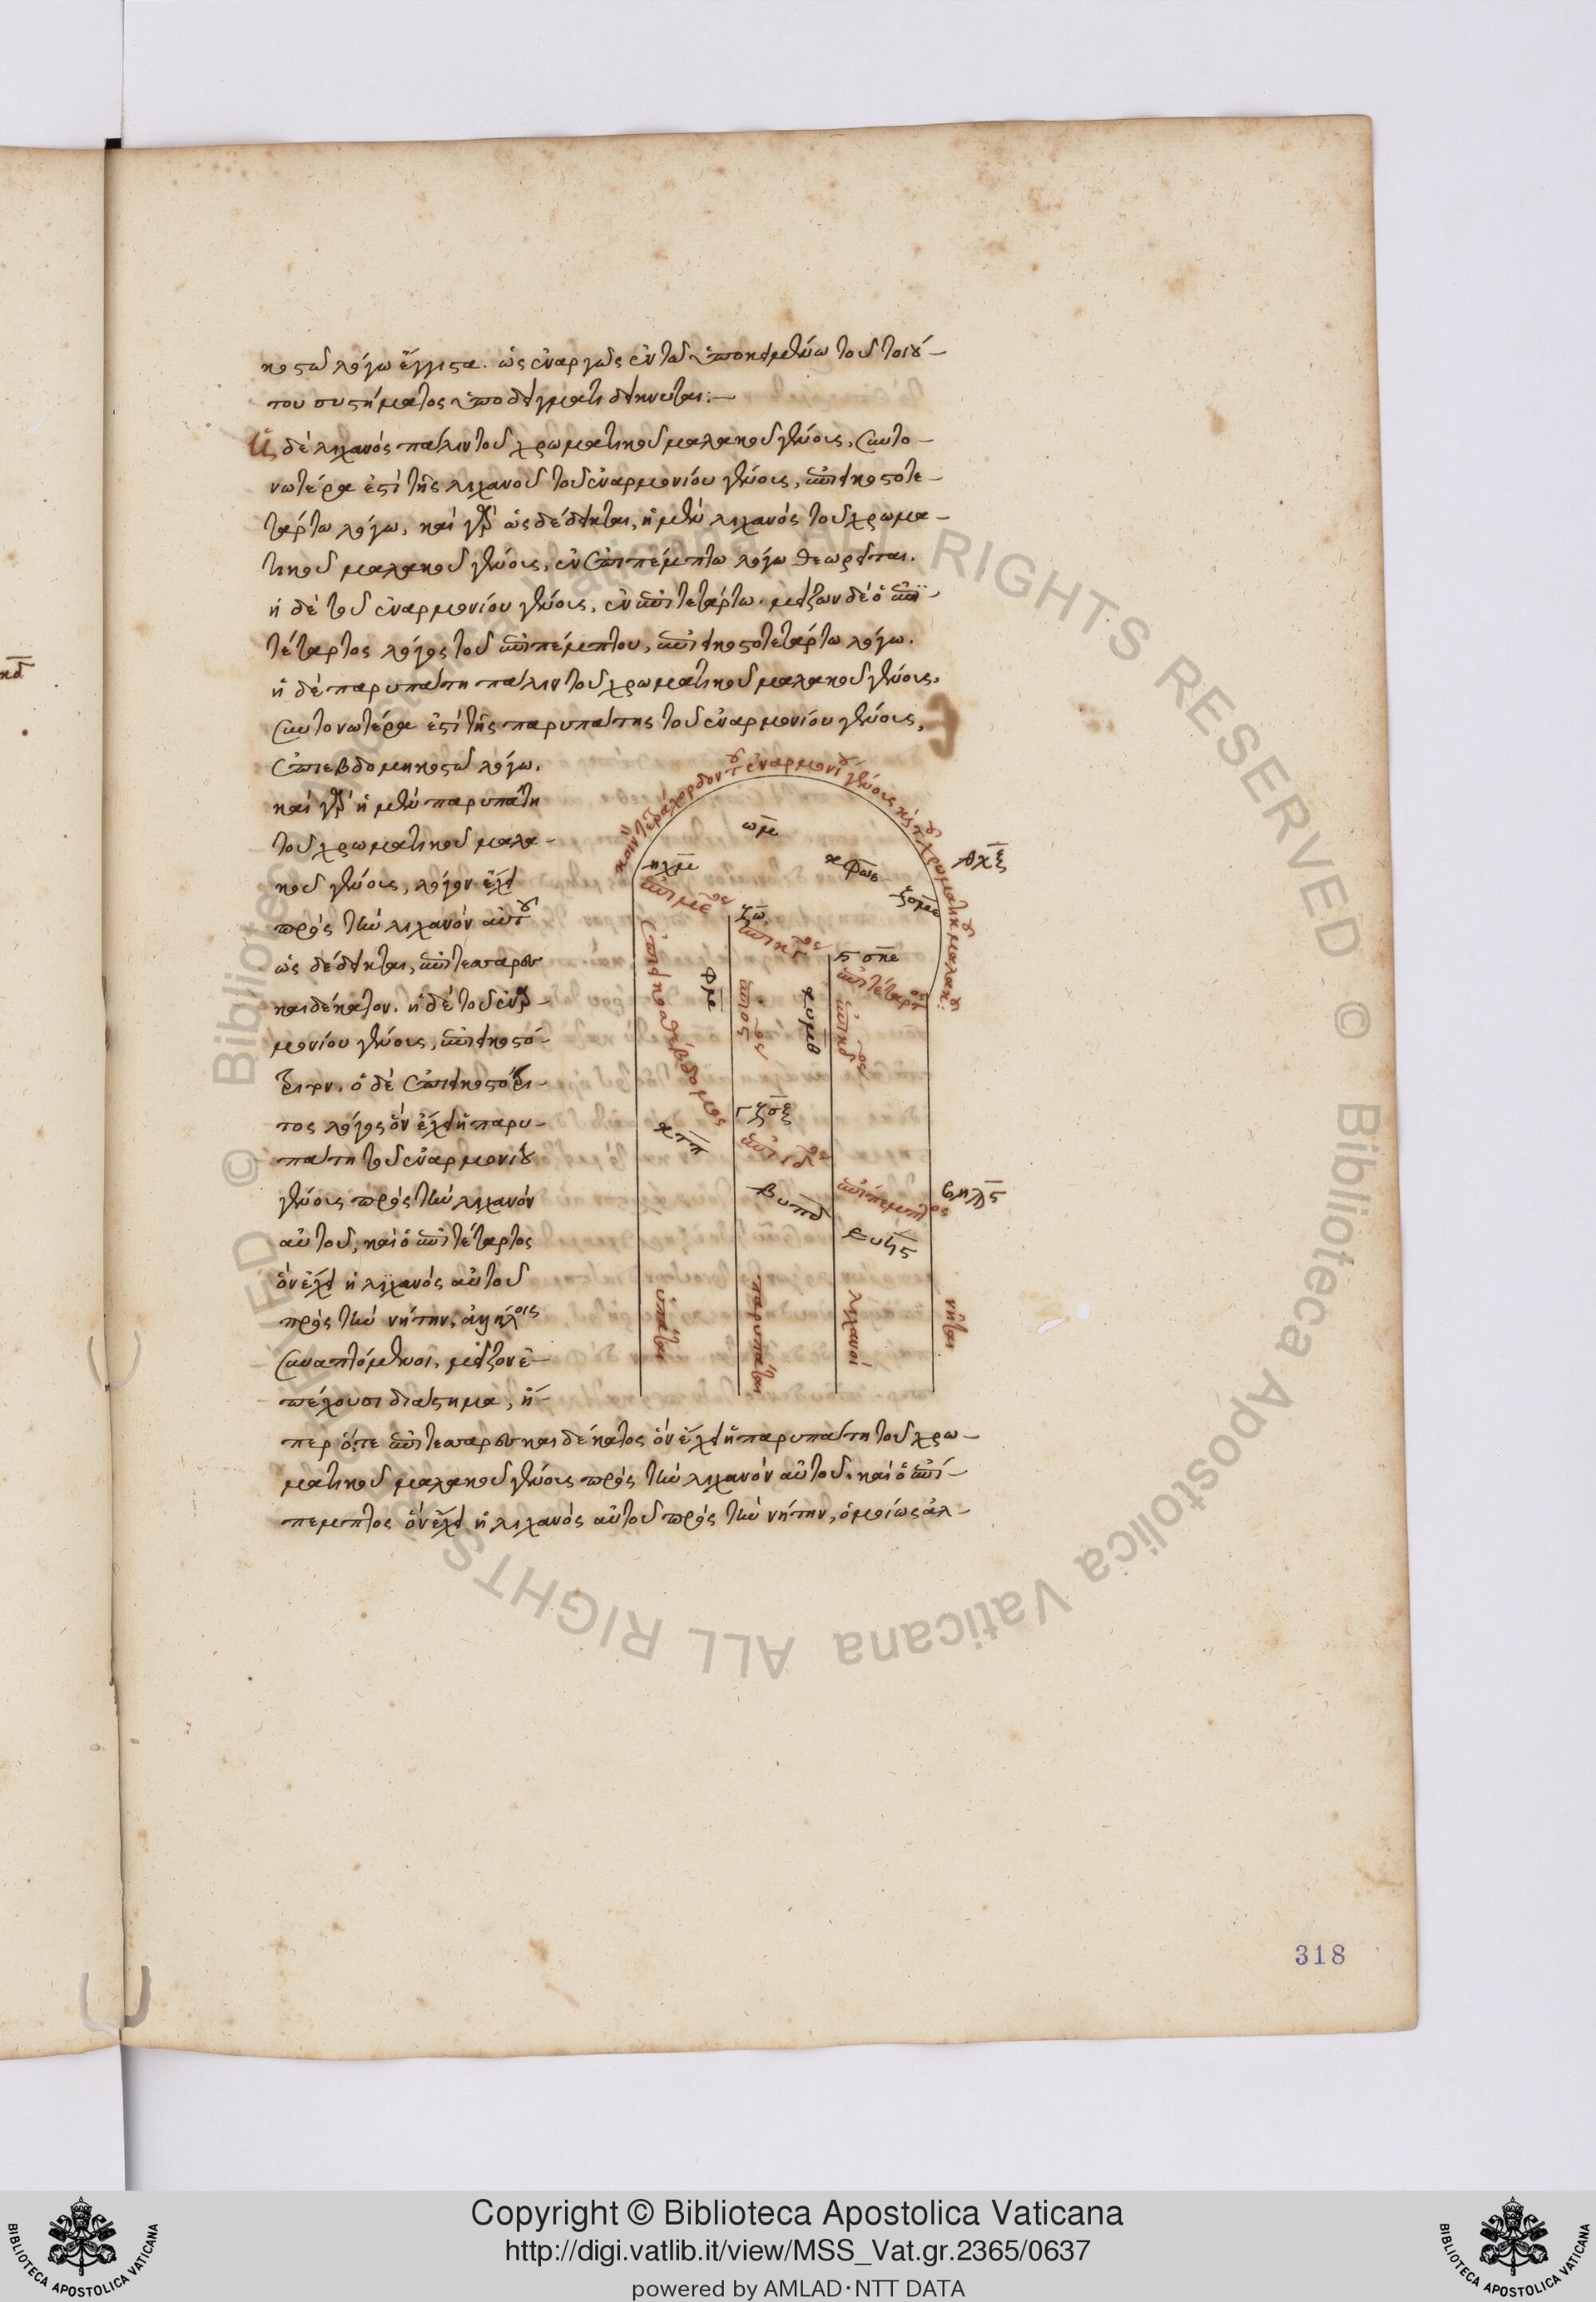 κοστῷ λόγῳ ἔγγιστα. ὡς ἐναργῶς ἐν τῷ ὑποκειμένῳ τοῦ τοιού-
του συστήματος ὑποδείγματι δείκνυται:—
Ἡ δὲ λιχανὸς πάλιν τοῦ χρωματικοῦ μαλακοῦ γένους, συντο-
νωτέρα ἐστὶ τῆς λιχανοῦ τοῦ ἐναρμονίου γένους, ἐπιεικοστοτε-
τάρτῳ λόγῳ. καὶ γὰρ ὡς δέδεικται, ἡ μὲν λιχανὸς τοῦ χρωμα-
τικοῦ μαλακοῦ γένους, ἐν ἐπιπέμπτῳ λόγῳ θεωρεῖται.
ἡ δὲ τοῦ ἐναρμονίου γένους, ἐν ἐπιτετάρτῳ. μείζων δὲ ὁ ἐπι-
τέταρτος λόγος τοῦ ἐπιπέμπτου, ἐπιεικοστοτετάρτῳ λόγῳ.
ἡ δὲ παρυπάτη πάλιν τοῦ χρωματικοῦ μαλακοῦ γένους,
συντονωτέρα ἐστὶ τῆς παρυπάτης τοῦ ἐναρμονίου γένους,
ἐπιεβδομηκοστῷ λόγῳ.
καὶ γὰρ ἡ μὲν παρυπάτη
τοῦ χρωματικοῦ μαλα-
κοῦ γένους, λόγον ἔχει
πρὸς τὴν λιχανὸν αὐτοῦ
ὡς δέδεικται, ἐπιτεσσαρεσ-
καιδέκατον. ἡ δὲ τοῦ ἐναρ-
μονίου γένους, ἐπιεικοστό-
τριτον. ὁ δὲ ἐπιεικοστότρι-
τος λόγος ὃν ἔχει ἡ παρυ-
πάτη τοῦ ἐναρμονίου
γένους πρὸς τὴν λιχανὸν
αὐτοῦ, καὶ ὁ ἐπιτέταρτος
ὃν ἔχει ἡ λιχανὸς αὐτοῦ
πρὸς τὴν νήτην, ἀλλήλοις
συναπτόμενοι, μεῖζον ἐ-
πέχουσι διάστημα, ἤ-
περ ὅ,τε ἐπιτεσσαρεσκαιδέκατος ὃν ἔχει ἡ παρυπάτη τοῦ χρω-
ματικοῦ μαλακοῦ γένους πρὸς τὴν λιχανὸν αὐτοῦ. καὶ ὁ ἐπί-
πεμπτος ὃν ἔχει ἡ λιχανὸς αὐτοῦ πρὸς τὴν νήτην, ὁμοίως ἀλ-
κοινὸν τετράχορδον τοῦ ἐναρμονίου γένους καὶ τοῦ χρωματικοῦ μαλακοῦ:
ωμε
ηχμε
ἐπὶ με ος
ζω
ϛ σπε
ἐπιτέταρτος
ἐπιεικοσθέβδομος
φμε
αυμβ
ἐπὶ κδ ος
ατπ
ἐπὶ ιδ ος
βυπδ
ἐπίπεμπτος
ὑπάται
παρυπάται
λιχανοί
νῆται
318
© Biblioteca Apostolica Vaticana ALL RIGHTS RESERVED © Biblioteca Apostolica Vaticana ALL RIGHTS RESERVED
Copyright © Biblioteca Apostolica Vaticana
http://digi.vatlib.it/view/MSS_Vat.gr.2365/0637
powered by AMLAD·NTT DATA
BIBLIOTECA APOSTOLICA VATICANA
BIBLIOTECA APOSTOLICA VATICANA